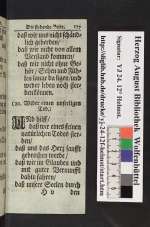 Die siebende Bitte. 177
daß wir uns nicht schänd-
lich geberden/
daß wir nicht von allem
Verstand kommen/
daß wir nicht ohne Ge-
hör/ Sehen und Füh-
len lange da liegen/ und
weder leben noch ster-
ben können.
Wider einen unseeligen
Tod.
UNd hilf/
daß wir eines seinen
natürlichen Todes ster-
ben/
daß uns das Hertz sanfft
gebrochen werde/
daß wir im Glauben und
mit guter Vernunfft
dahin fahren/
daß unsere Seelen durch
H v den
Herzog August Bibliothek Wolfenbüttel
Signatur: YJ 24, 12° Helmst.
http://diglib.hab.de/drucke/yj-24-12f-helmst/start.htm